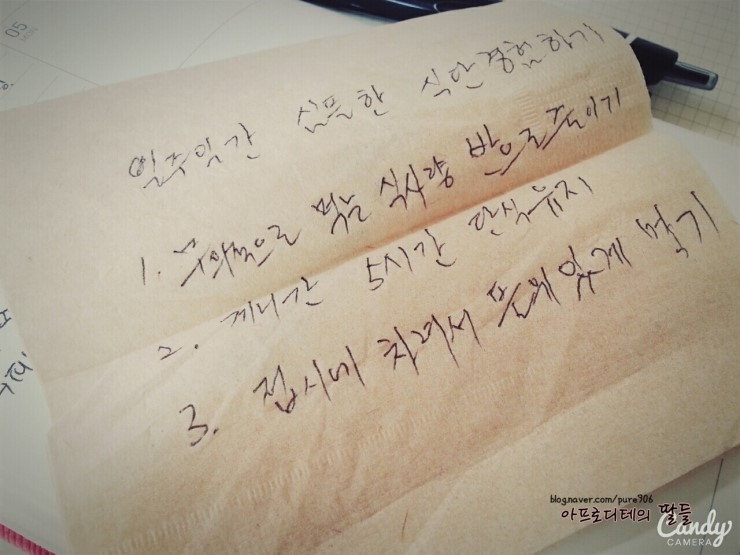 일주일간 심플한 식단경험하기
1. 무의식으로 먹는 식사량 반으로 줄이기
2. 끼니간 5시간 단식유지
3. 접시에 차려서 품위있게 먹기
blog.naver.com/pure306
아프로디테의 딸들
Candy
CAMERA
05